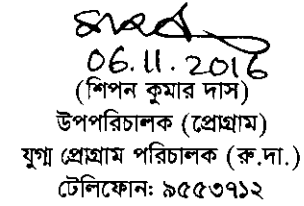 06.11.2016
(শিপন কুমার দাস)
উপপরিচালক (প্রোগ্রাম)
যুগ্ম প্রোগ্রাম পরিচালক (রু.দা.)
টেলিফোন: ৯৫৫৩৭১২